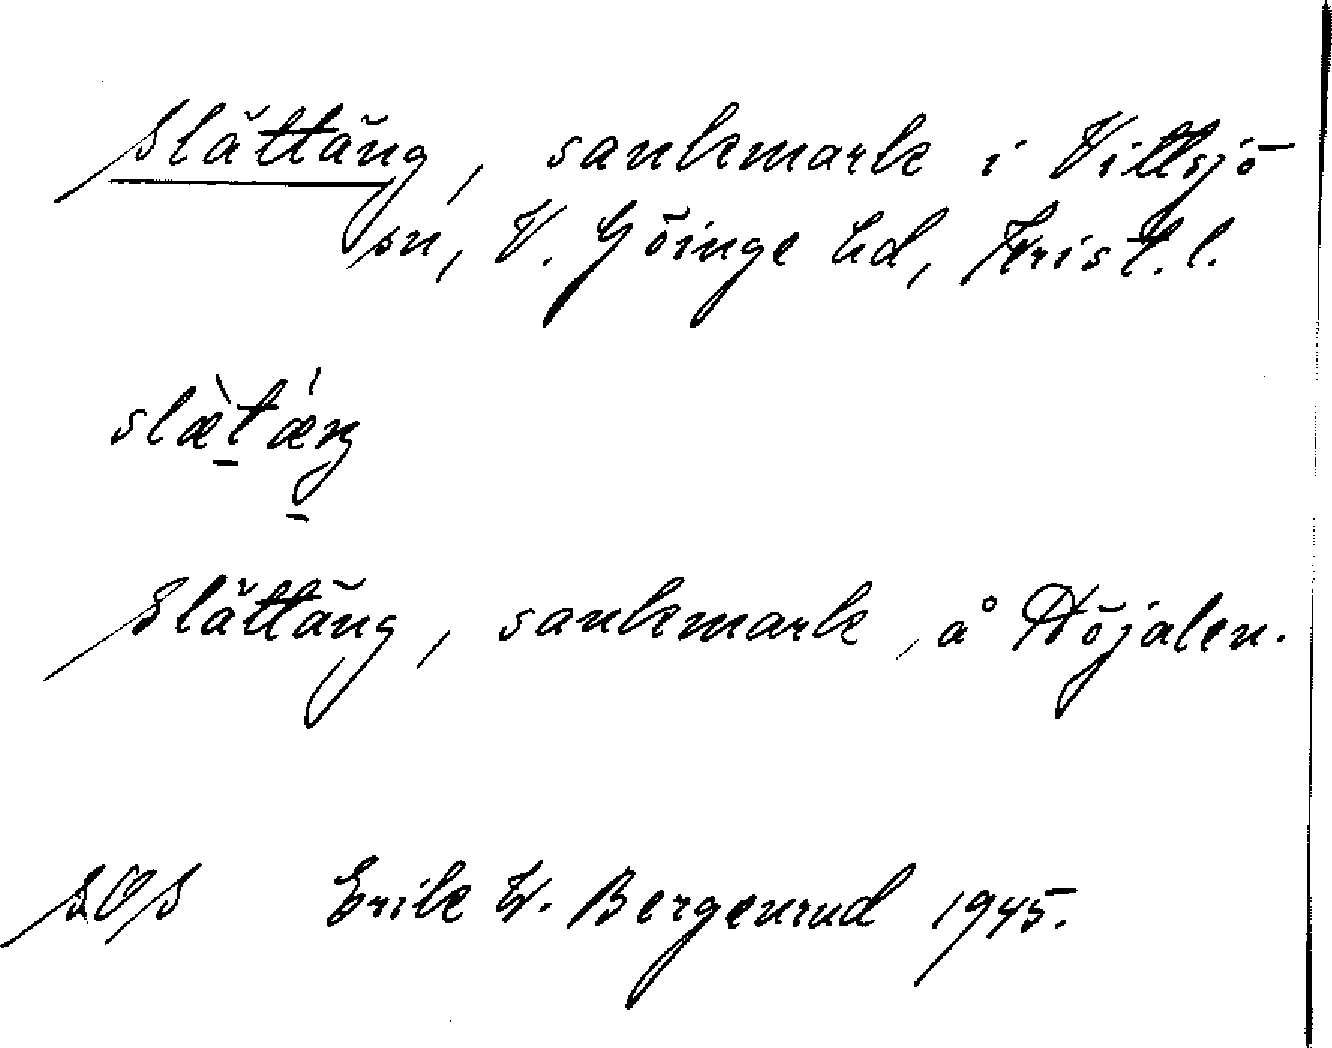 Slättäng, sankmark i Vittsjö
sn, V. Göinge hd, Krist. l.
slæ̀tǽŋ
Slättäng, sankmark, å Höjalen.
SOS Erik W. Bergenrud 1945.